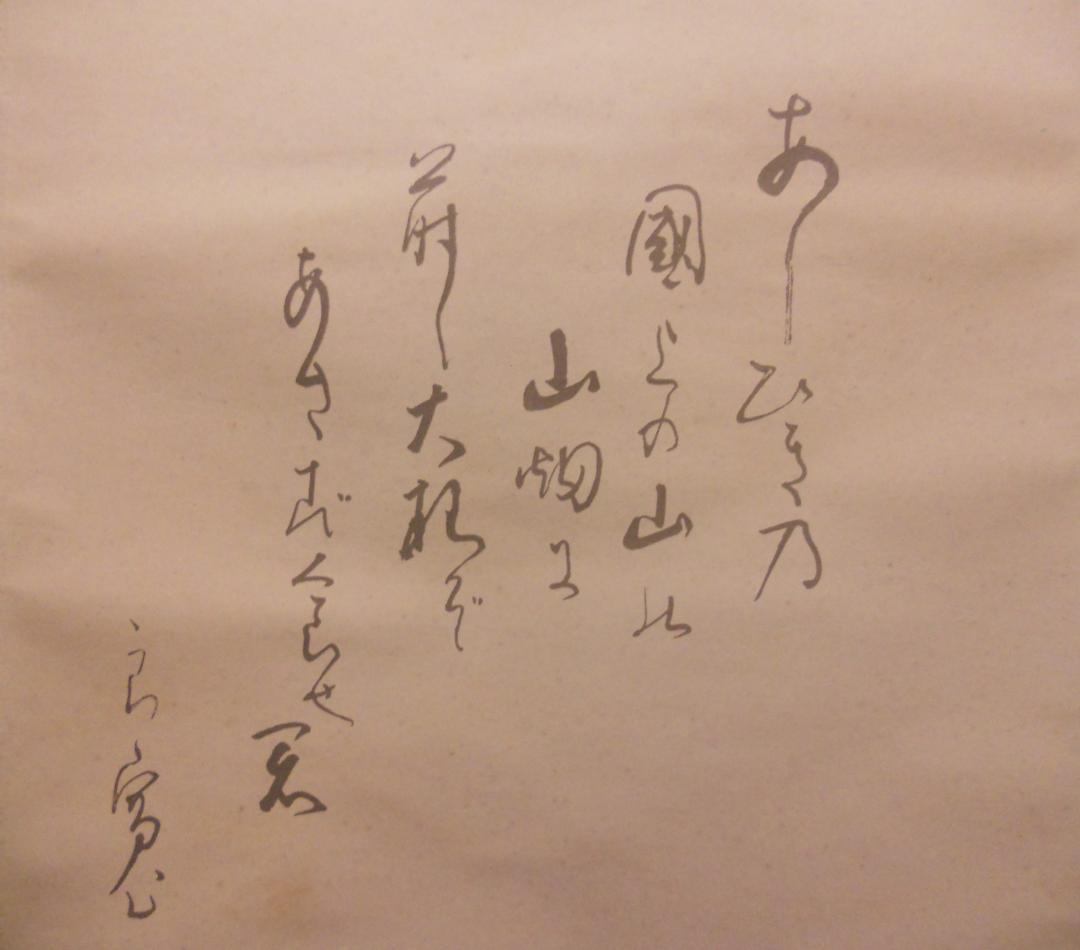 あしひき乃
國上の山の
山畑に
蒔し大根ぞ
あさず食せ君
良寛